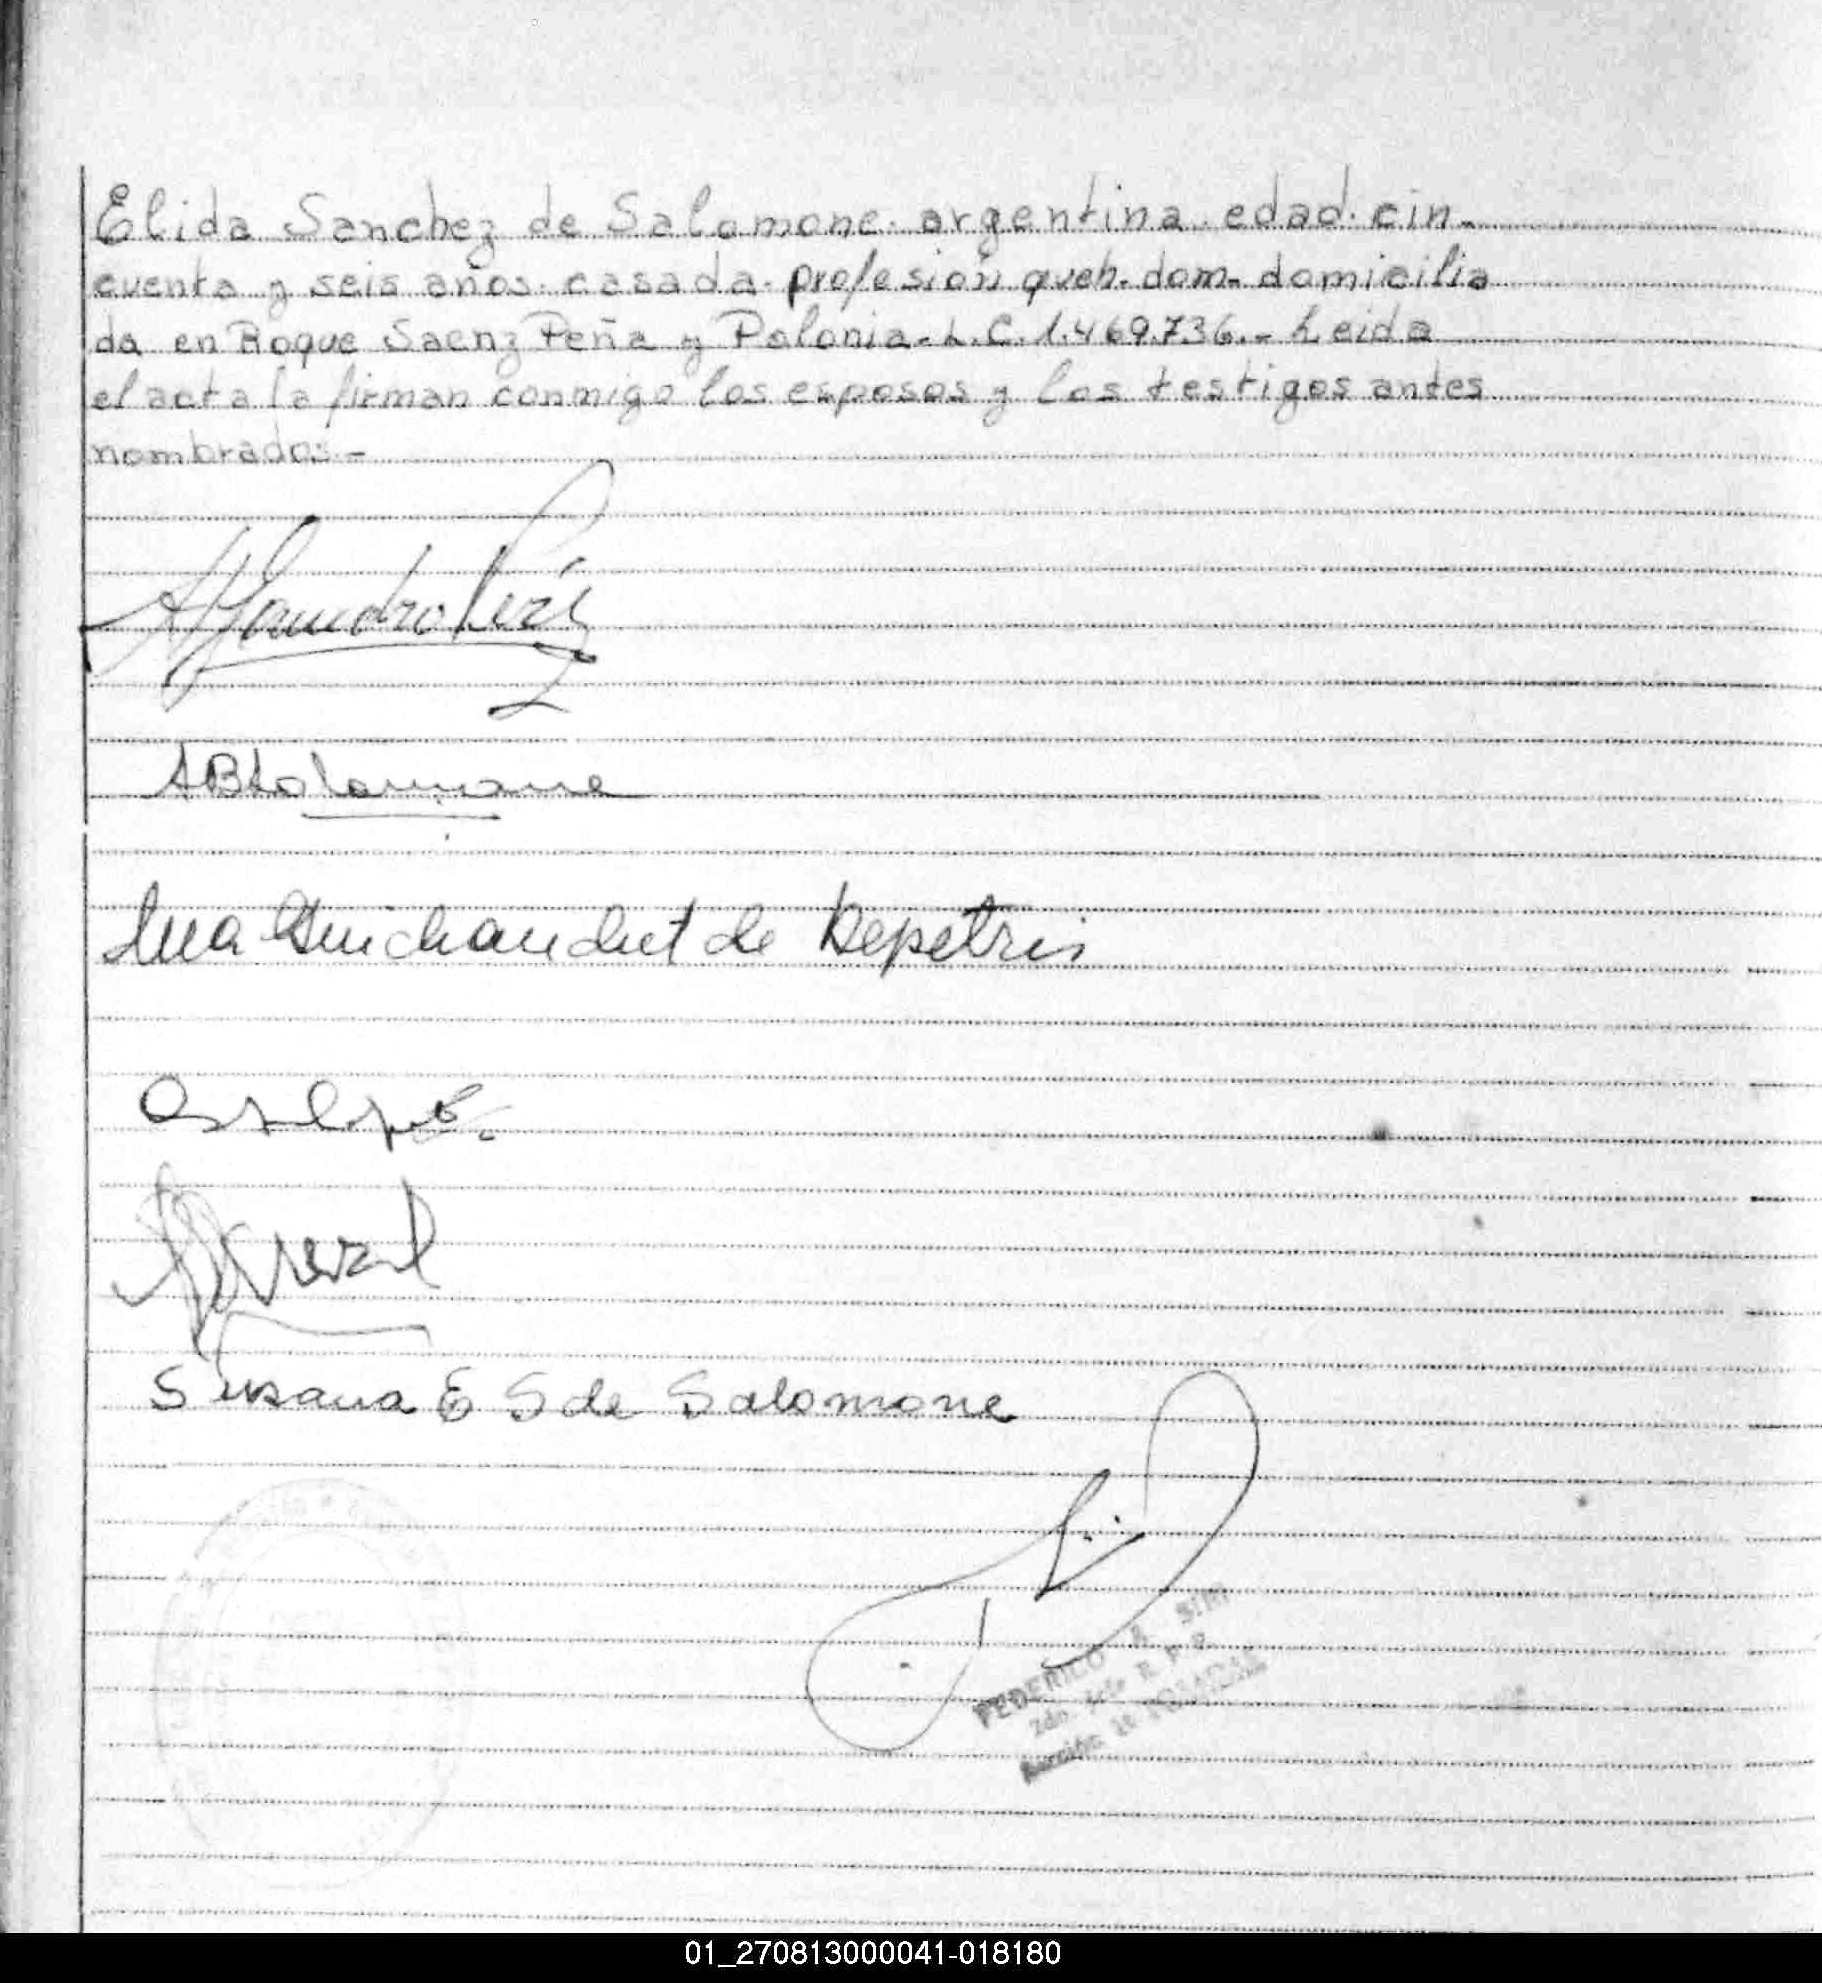 Elida Sanchez de Salomone. argentina. edad. cin-
cuenta y seis años. casada. profesion queh. dom- domicilia
da en Roque Saenz Peña y Polonia-L.C.1.469.736.- Leida
el acta la firman conmigo los esposos y los testigos antes
nombrados.-
Alejandro
ABSalomone
Ana Guichaudut de Depetris
Susana E S de Salomone
FEDERICO
2do. Jefe R. P. P.
POSADAS
01_270813000041-018180